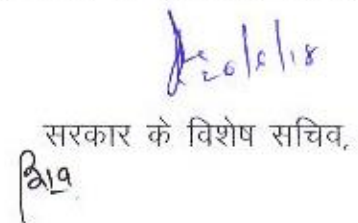 20/6/18
सरकार के विशेष सचिव,